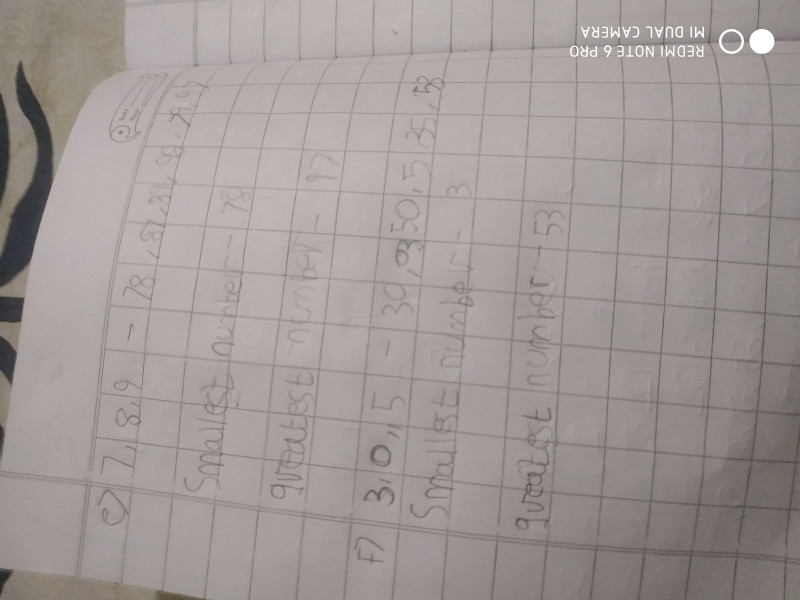 e) 7, 8, 9 - 78, 87, 89, 98, 79, 97
Smallest number - 78
greatest number - 97
F) 3, 0, 5 - 30, 350, 5, 35, 53
Smallest number - 3
greatest number - 53
REDMI NOTE 6 PRO
MI DUAL CAMERA